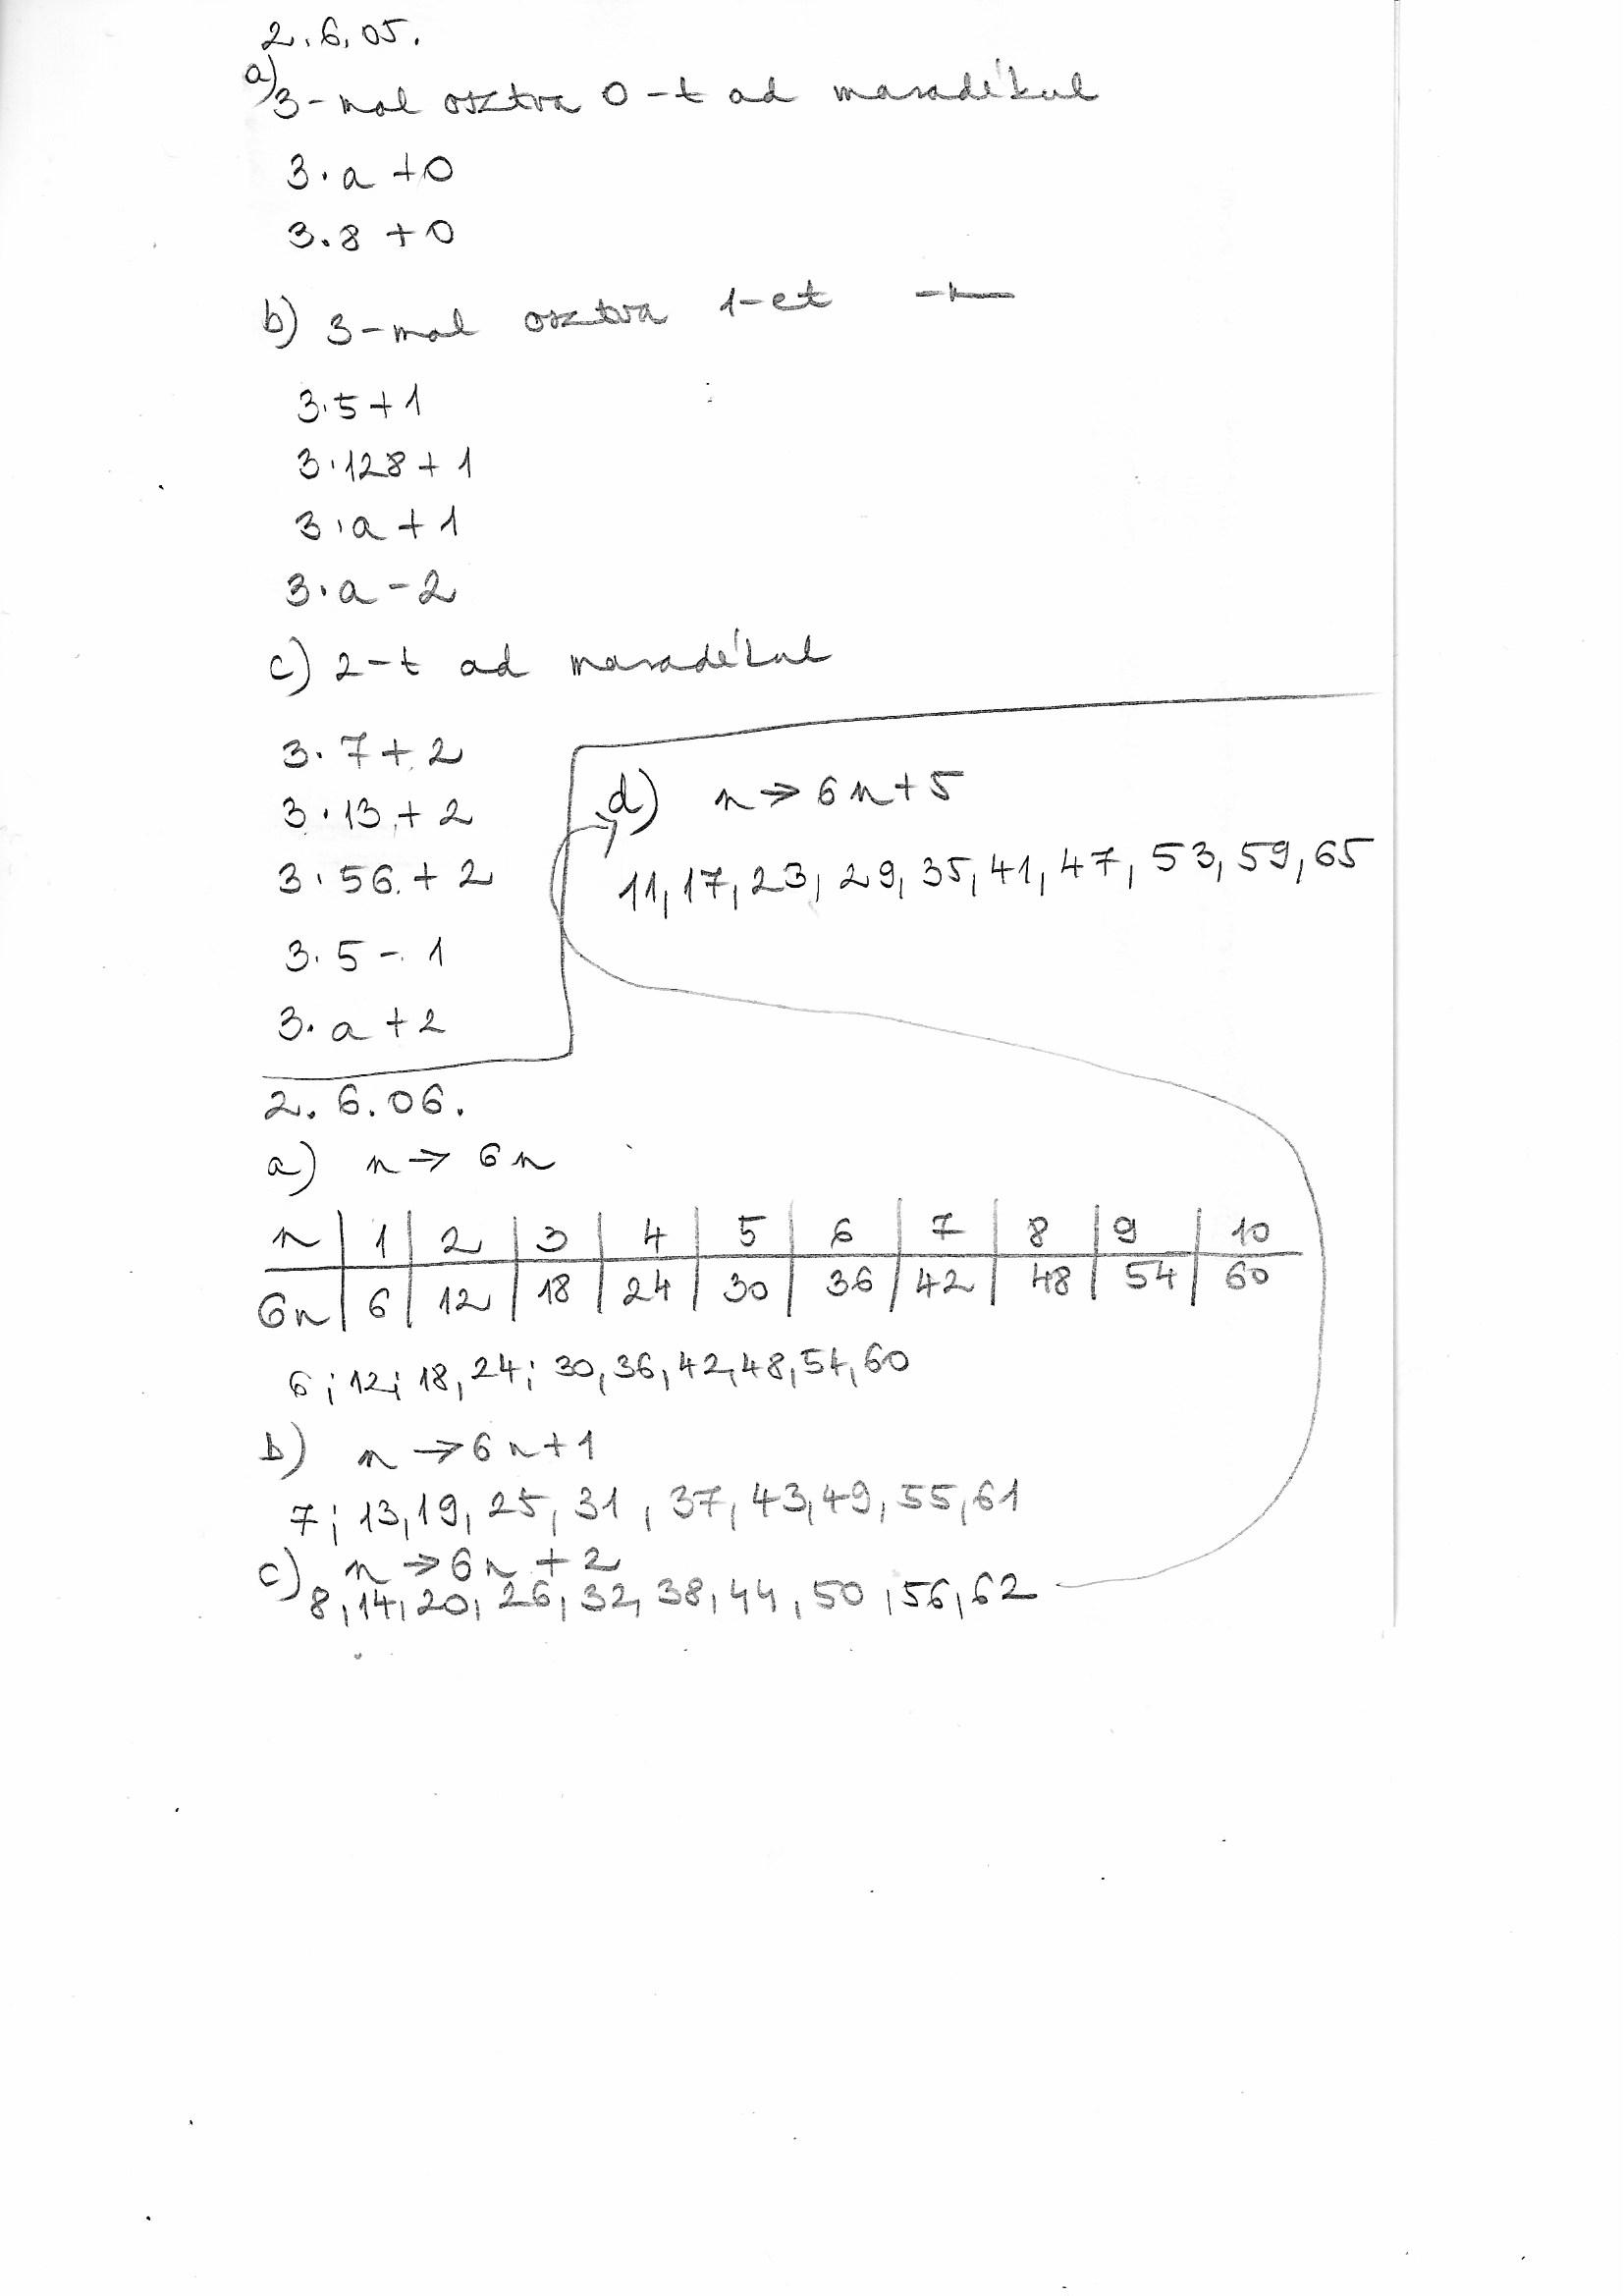 2.6.05.
a) 3-mal osztva 0-t ad maradékul
3·a+0
3·8+0
b) 3-mal osztva 1-et -〃-
3·5+1
3·128+1
3·a+1
3·a-2
c) 2-t ad maradékul
3·7+2
3·13+2
3·56+2
3·5-1
3·a+2
2.6.06.
a) n→6n
n | 1 | 2 | 3 | 4 | 5 | 6 | 7 | 8 | 9 | 10
6n | 6 | 12 | 18 | 24 | 30 | 36 | 42 | 48 | 54 | 60
6; 12; 18, 24; 30, 36, 42, 48, 54, 60
b) n→6n+1
7; 13, 19, 25, 31, 37, 43, 49, 55, 61
c) n→6n+2
8, 14, 20, 26, 32, 38, 44, 50, 56, 62
d) n→6n+5
11, 17, 23, 29, 35, 41, 47, 53, 59, 65